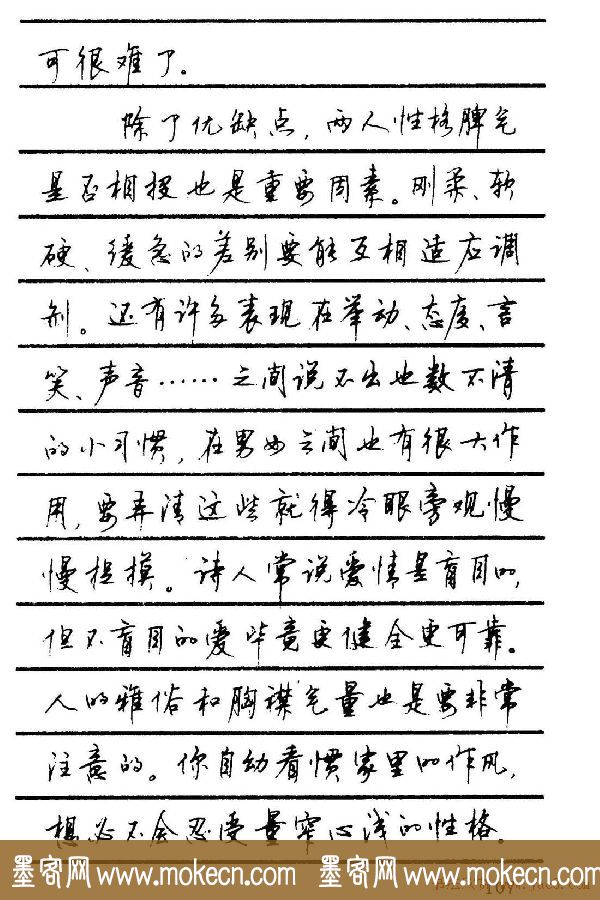 可很难了。
除了优缺点，两人性格脾气
是否相投也是重要因素。刚柔、软
硬、缓急的差别要能互相适应调
剂。还有许多表现在举动、态度、言
笑、声音……之间说不出也数不清
的小习惯，在男女之间也有很大作
用，要弄清这些就得冷眼旁观慢
慢捉摸。诗人常说爱情是盲目的，
但不盲目的爱毕竟更健全更可靠。
人的雅俗和胸襟气量也是要非常
注意的。你自幼看惯家里的作风，
想必不会忍受量窄心浅的性格。
墨客网 www.mokecn.com 墨客网 www.mokecn.com